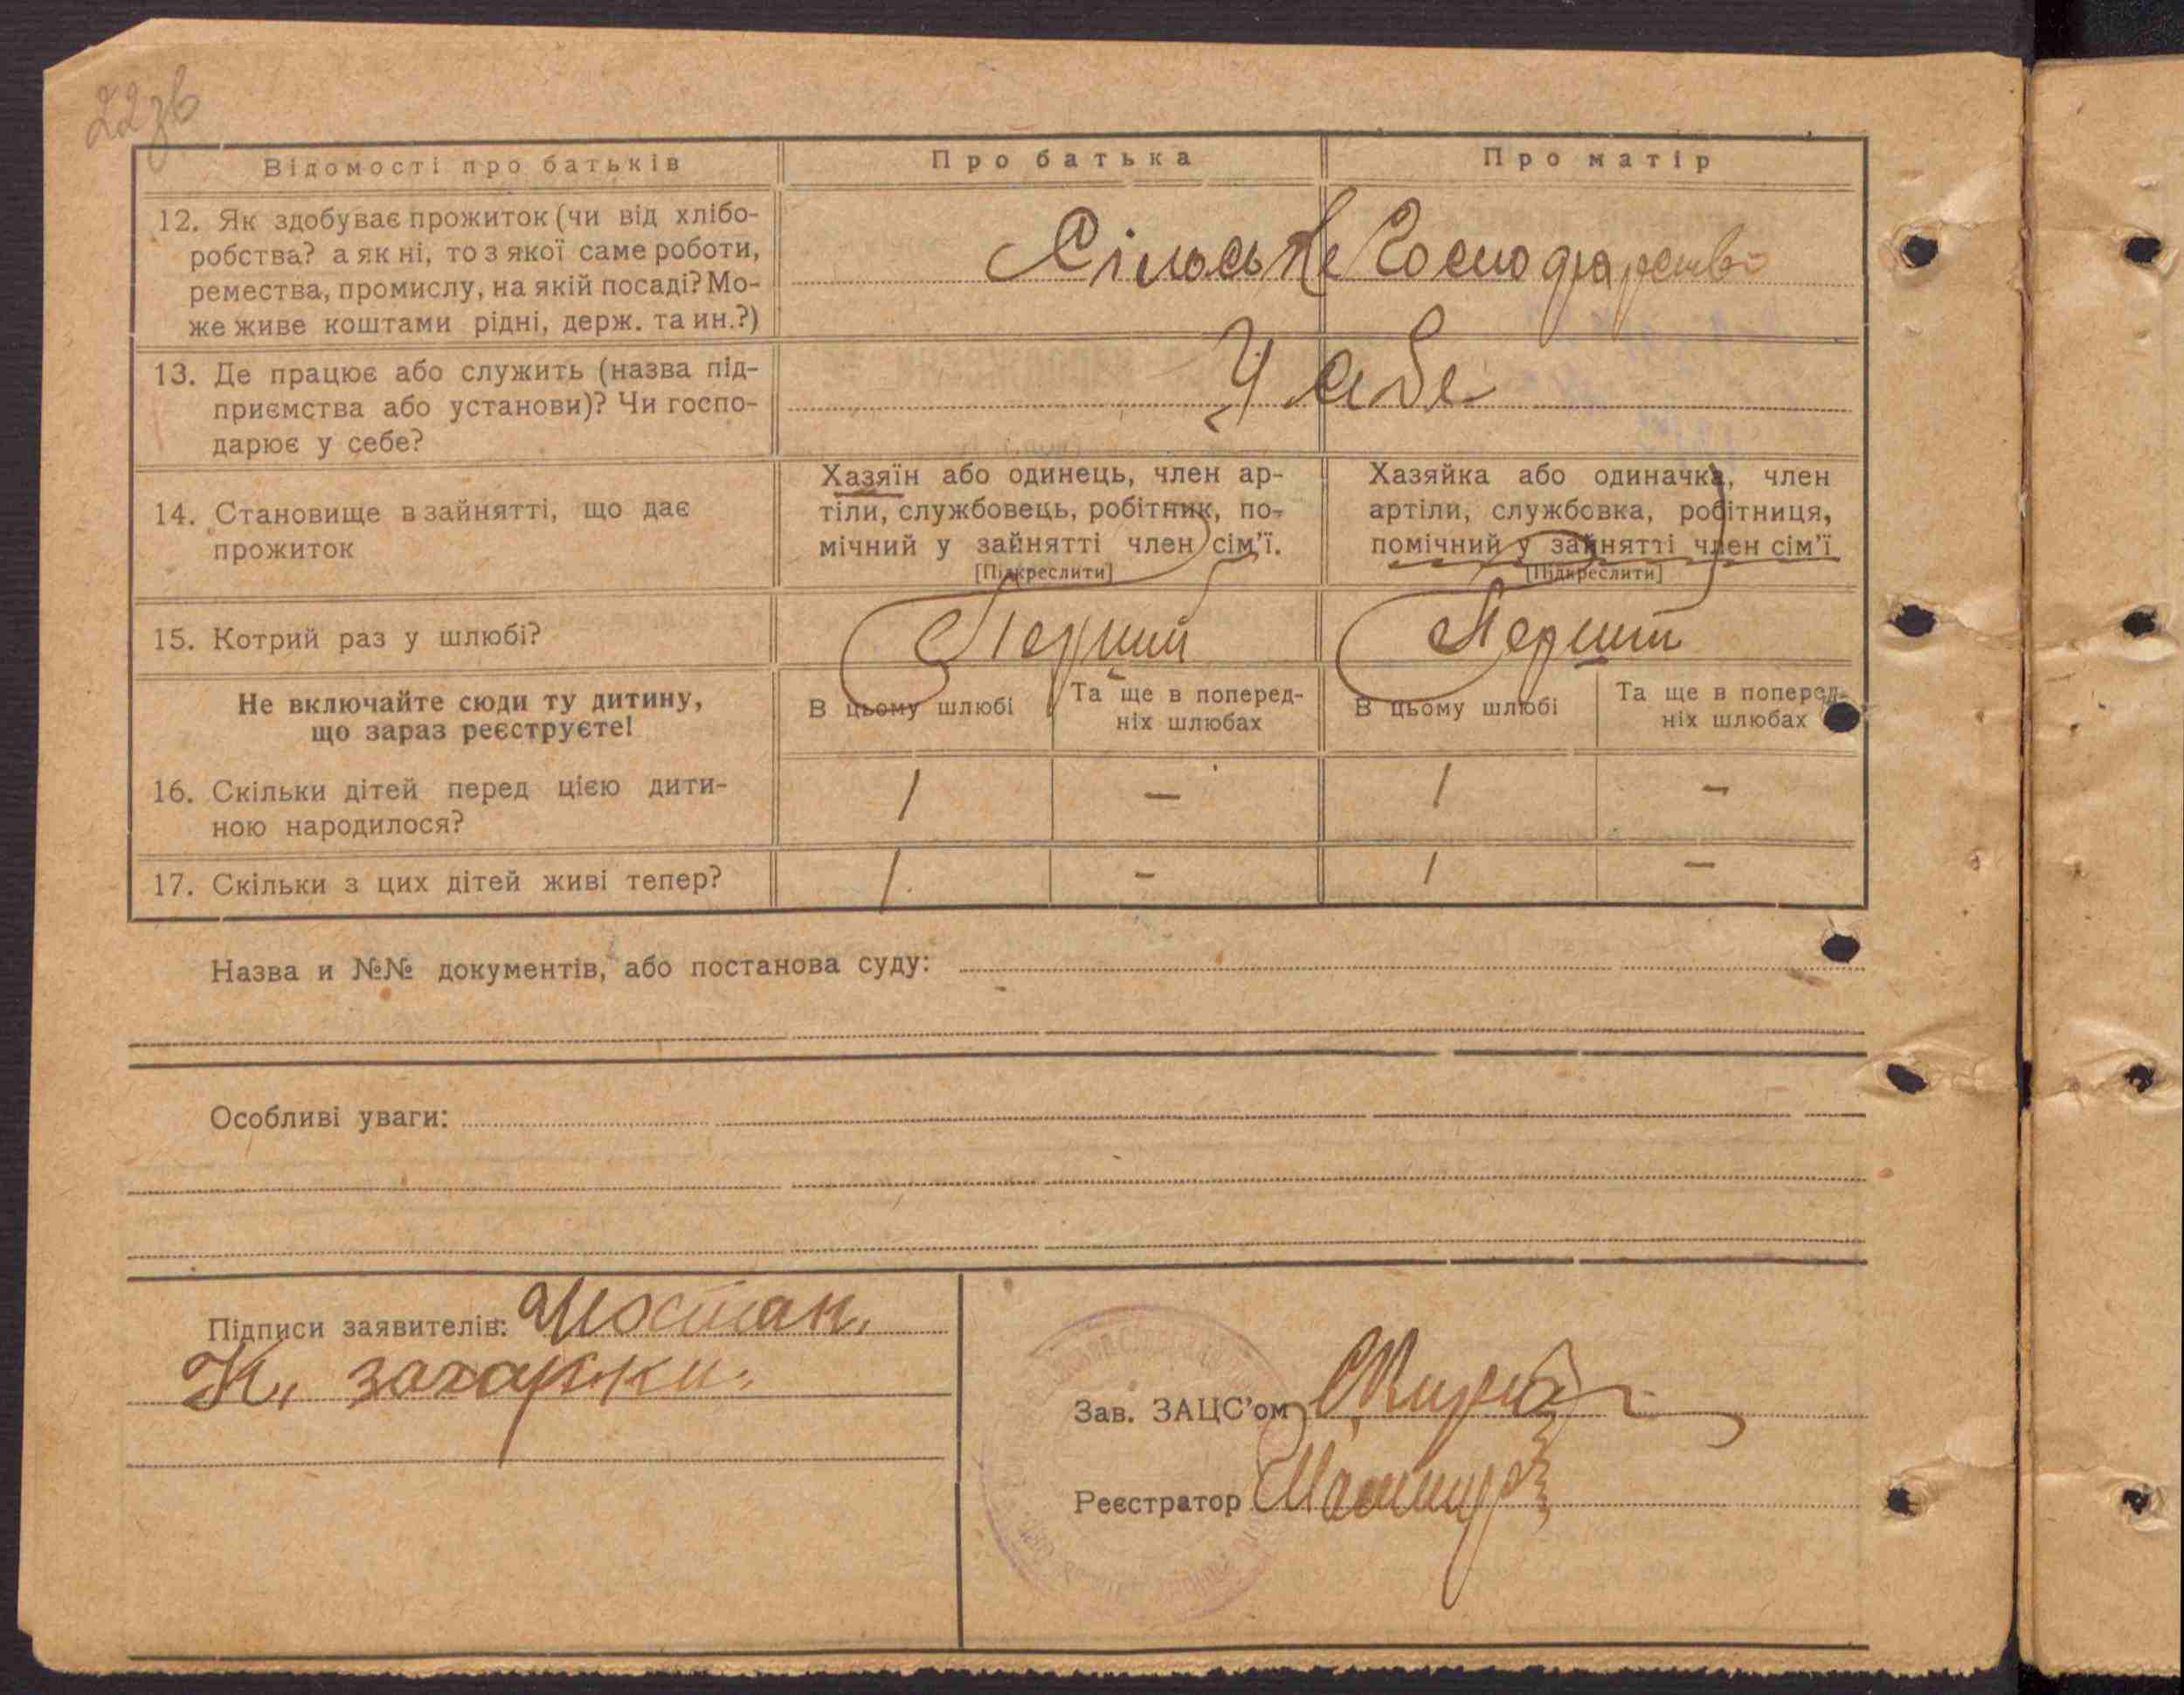 22зв
Відомості про батьків
Про батька
Про матір
12. Як здобуває прожиток (чи від хлібо-
робства? а як ні, то з якої саме роботи,
ремества, промислу, на якій посаді? Мо-
же живе коштами рідні, держ. та ин.?)
Сільське Господарство
13. Де працює або служить (назва під-
приємства або установи)? Чи госпо-
дарює у себе?
У себе
14. Становище в зайнятті, що дає
прожиток
Хазяїн або одинець, член ар-
тіли, службовець, робітник, по-
мічний у зайнятті член сім'ї.
[Підкреслити]
Хазяйка або одиначка, член
артіли, службовка, робітниця,
помічний у зайнятті член сім'ї
[Підкреслити]
15. Котрий раз у шлюбі?
Перший
Перший
Не включайте сюди ту дитину,
що зараз реєструєте!
В цьому шлюбі
Та ще в поперед-
ніх шлюбах
В цьому шлюбі
Та ще в поперед-
ніх шлюбах
16. Скільки дітей перед цією дити-
ною народилося?
1 — 1 —
17. Скільки з цих дітей живі тепер?
1 — 1 —
Назва и №№ документів, або постанова суду:
Особливі уваги:
Підписи заявителів: Шостак.
К.
Зав. ЗАЦС'ом
Реєстратор